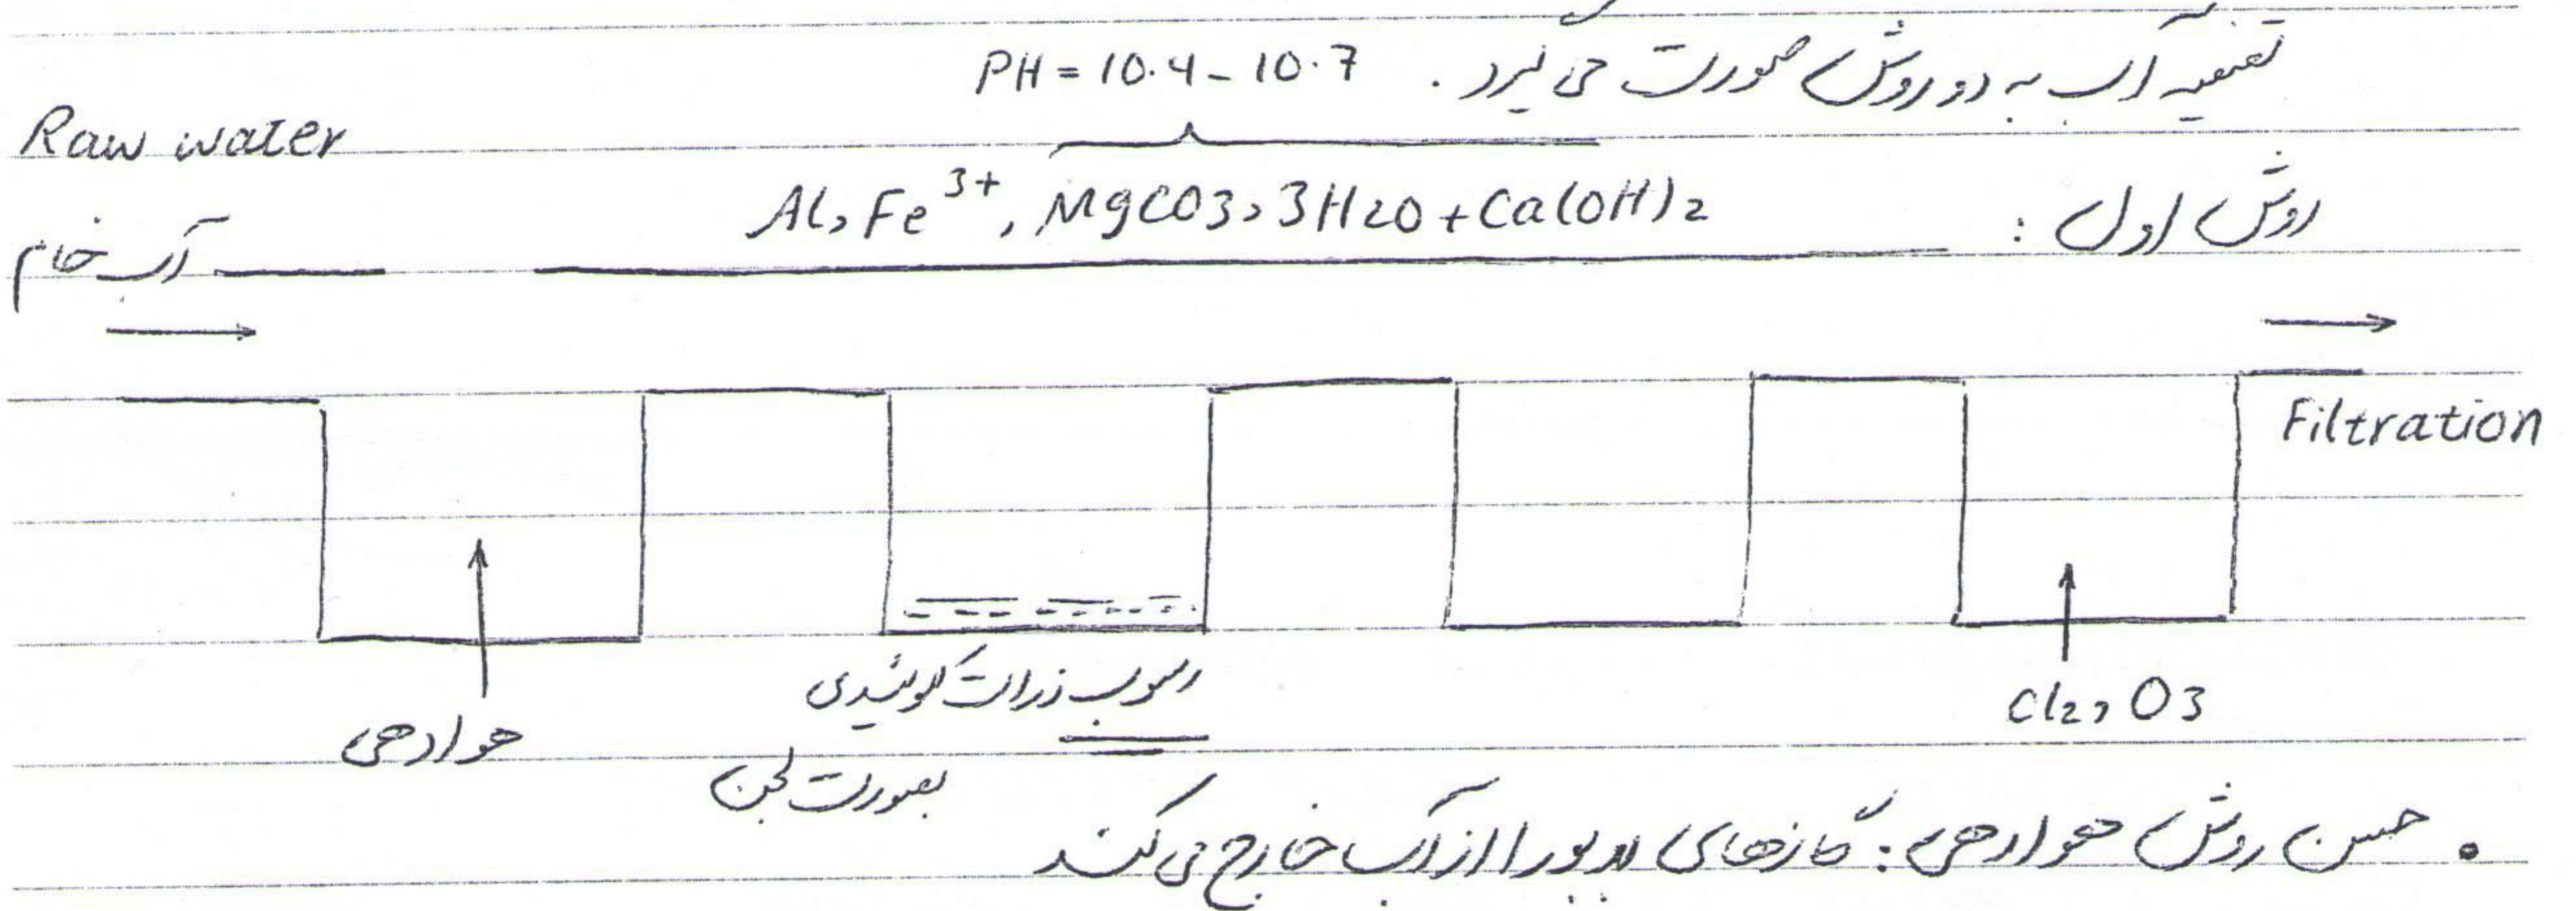 تصفیه آب به دو روش صورت می گیرد. PH = 10.4 - 10.7
Raw water
روش اول : Al, Fe3+, MgCO3, 3H2O + Ca(OH)2
آب خام
Filtration
هوادهی
رسوب ذرات کلوئیدی
بصورت لجن
Cl2, O3
• حسن روش هوادهی : گازهای بد بو را از آب خارج می کند